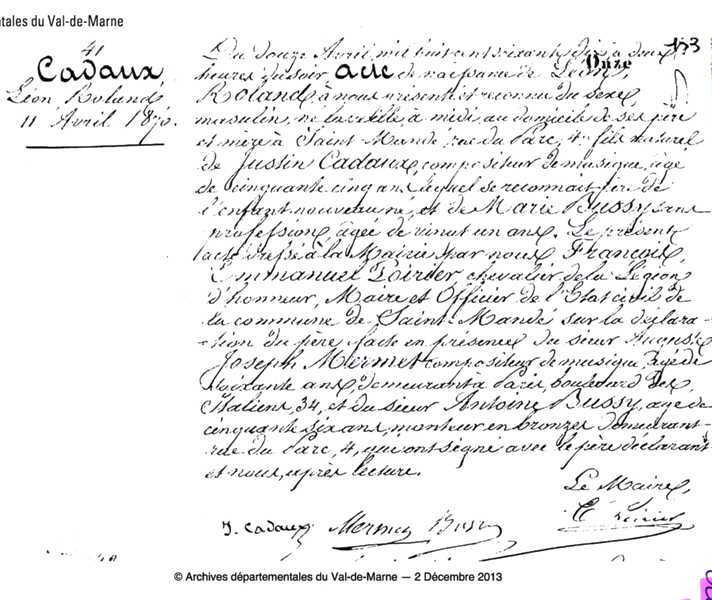 ntales du Val-de-Marne
41
Cadaux
Léon Roland
11 Avril 1870.
Du douze Avril mil huit cent soixante dix à deux
heures du soir, acte de naissance de Léon,
Onze
133
Roland, à nous présenté et reconnu du sexe
masulin, né la veille à midi, au domicile de ses père
et mère à Saint-Mandé, rue du Parc, 4, fils naturel
de Justin Cadaux, compositeur de musique, âgé
de cinquante cinq ans, lequel se reconnait père de
l'enfant nouveau né, et de Marie Bussy, sans
profession, âgée de vingt un ans. Le présent
acte dressé à la Mairie par nous François,
Emmanuel Poirier, chevalier de la Légion
d'honneur, Maire et Officier de l'Etat civil de
la commune de Saint-Mandé sur la déclara-
tion du père, faite en présence du sieur Auguste
Joseph Mermet compositeur de musique, âgé de
soixante ans, demeurant à Paris, boulevard des
Italiens, 34, et du sieur Antoine Bussy, âgé de
cinquante six ans, monteur en bronzes demeurant
rue du Parc, 4, qui ont signé avec le père déclarant
et nous, après lecture.
Le Maire,
J. Cadaux Mermet Bussy E Poirier
© Archives départementales du Val-de-Marne — 2 Décembre 2013